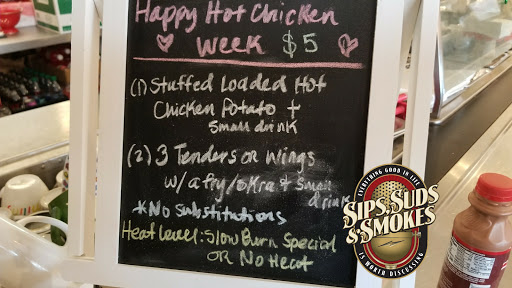 Happy Hot Chicken
Week $5
(1) Stuffed Loaded Hot
Chicken Potato +
small drink
(2) 3 Tenders or Wings
w/a fry/okra + Small
drink
*No Substitutions
Heat Level: Slow Burn Special
OR No Heat
EVERYTHING GOOD IN LIFE
SIPS, SUDS
& SMOKES
IS WORTH DISCUSSING